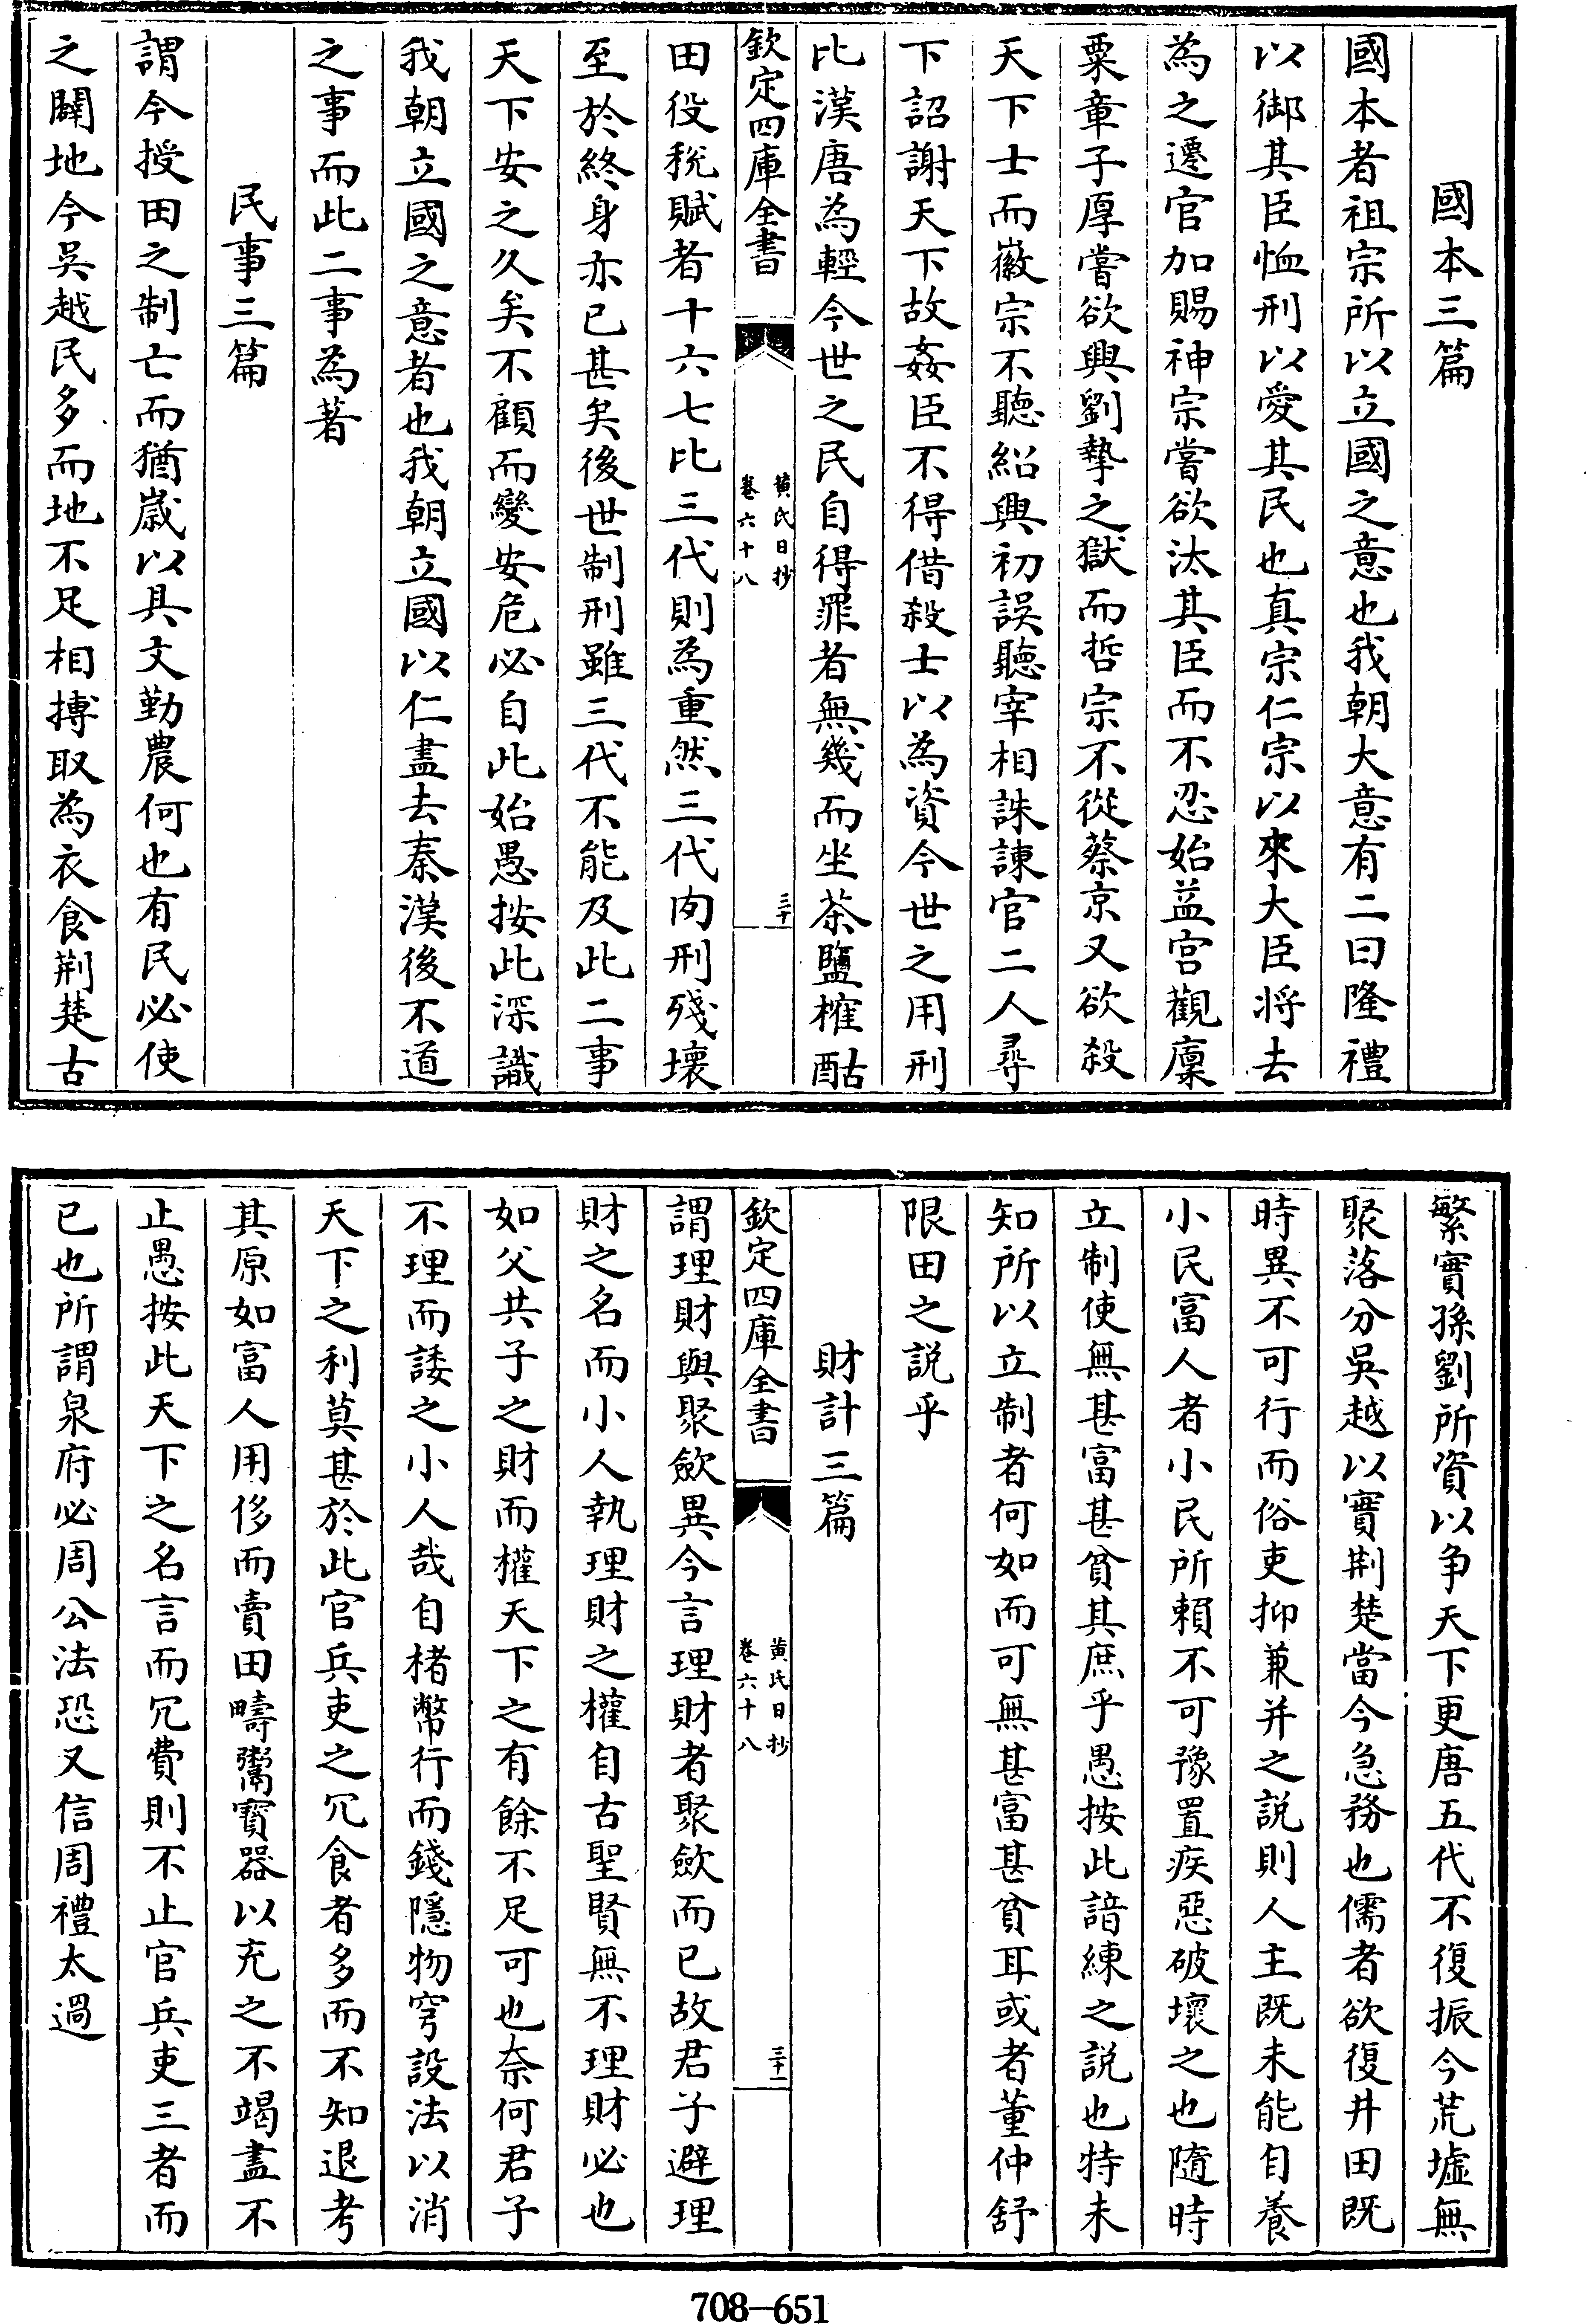 國本三篇
國本者祖宗所以立國之意也我朝大意有二曰隆禮
以御其臣恤刑以愛其民也真宗仁宗以來大臣將去
為之遷官加賜神宗嘗欲汰其臣而不忍始益宫觀廩
粟章子厚嘗欲興劉摯之獄而哲宗不從蔡京又欲殺
天下士而徽宗不聽紹興初誤聽宰相誅諫官二人尋
下詔謝天下故姦臣不得借殺士以為資今世之用刑
比漢唐為輕今世之民自得罪者無幾而坐茶鹽榷酤
欽定四庫全書
黄氏日抄
卷六十八
三十
田役稅賦者十六七比三代則為重然三代肉刑殘壞
至於終身亦已甚矣後世制刑雖三代不能及此二事
天下安之久矣不顧而變安危必自此始愚按此深識
我朝立國之意者也我朝立國以仁盡去秦漢後不道
之事而此二事為著
民事三篇
謂今授田之制亡而猶歳以具文勤農何也有民必使
之闢地今吳越民多而地不足相搏取為衣食荆楚古
繁實孫劉所資以争天下更唐五代不復振今荒墟無
聚落分吳越以實荆楚當今急務也儒者欲復井田既
時異不可行而俗吏抑兼并之説則人主既未能自養
小民富人者小民所賴不可豫置疾惡破壞之也隨時
立制使無甚富甚貧其庶乎愚按此諳練之説也特未
知所以立制者何如而可無甚富甚貧耳或者董仲舒
限田之説乎
財計三篇
欽定四庫全書
黄氏日抄
卷六十八
三十一
謂理財與聚歛異今言理財者聚歛而已故君子避理
財之名而小人執理財之權自古聖賢無不理財必也
如父共子之財而權天下之有餘不足可也奈何君子
不理而諉之小人哉自楮幣行而錢隱物穹設法以消
天下之利莫甚於此官兵吏之冗食者多而不知退考
其原如富人用侈而賣田疇鬻寶器以充之不竭盡不
止愚按此天下之名言而冗費則不止官兵吏三者而
已也所謂泉府必周公法恐又信周禮太過
708—651